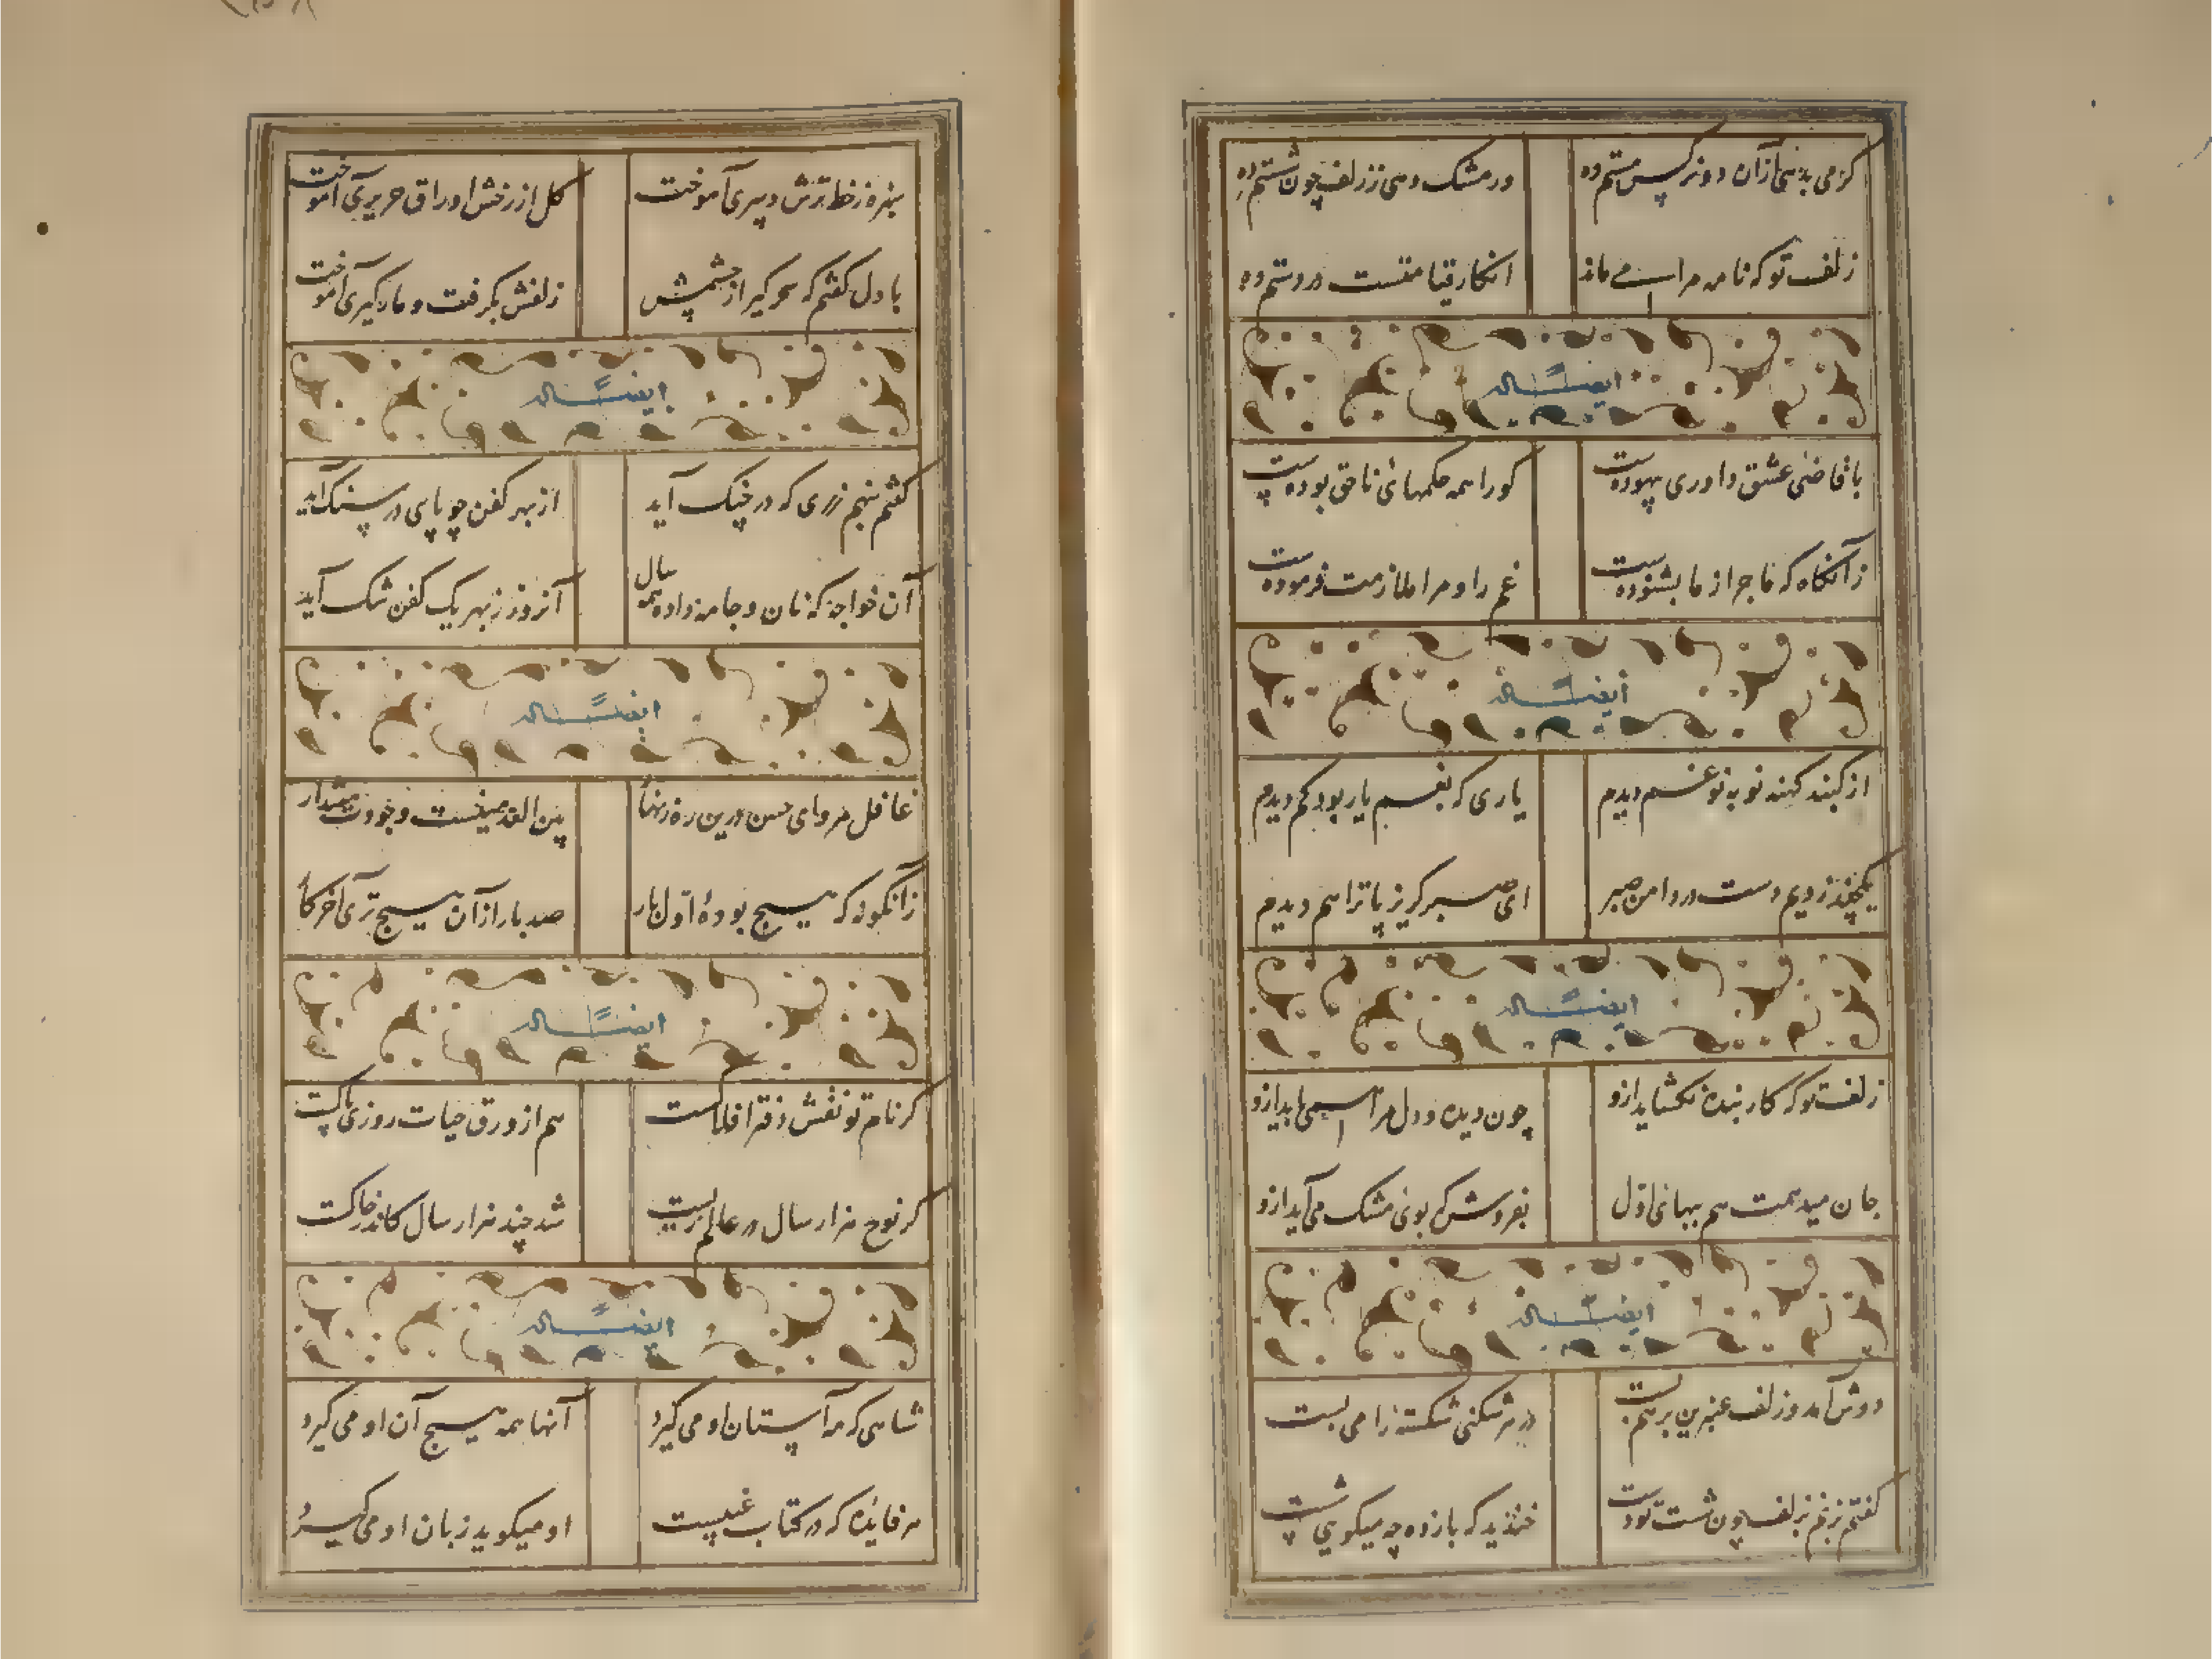 گر می بدهی از آن دو نرگس مستم ده
ور مشک دهی ز زلف چون شستم ده
زلف تو که نامه مرا می ماند
انکار قیامتست در دستم ده
ایضاً له
با قاضی عشق داوری بیهودست
کو را همه حکمهای ناحق بودست
زآنگاه که ماجرا ز ما بشنودست
غم را و مرا ملازمت فرمودست
ایضاً له
از گنبد کهنه نو به نو غم دیدم
یاری که بغم یار بود کم دیدم
یکچند زدیم دست در دامن صبر
ای صبر گریز پا ترا هم دیدم
ایضاً له
زلفت تو که کار بنده نگشاید ازو
چون دیده و دل مرا همی باید ازو
جان میدهمت هم ببهای اول
بفروش که بوی مشک می آید ازو
ایضاً له
دوش آمد و زلف عنبرین بر هم بست
در هر شکنی شکسته را می بست
گفتم بزنم بزلف چون شست تو دست
خندید که یازده چه میگویی شست
سبزه ز خط ترش دبیری آموخت
گل از رخش اوراق حریری آموخت
با دل گفتم که سحر گیر از چشمش
زلفش بگرفت و مارگیری آموخت
ایضاً له
گفتم بنهم زری که در چنگ آید
از بهر کفن چو پای در سنگ آید
آن خواجه که نان و جامه داده همه سال
آنروز ز بهر یک کفن تنگ آید
ایضاً له
غافل مرو ای حسن درین ره زنهار
بین العدمینست وجودت پندار
زانگونه که هیچ بودهٔ اول بار
صد بار از آن هیچ تری آخر کار
ایضاً له
گر نام تو نقش دفتر افلاکست
هم از ورق حیات روزی پاکست
گر نوح هزار سال در عالم زیست
شد چند هزار سال کاندر خاکست
ایضاً له
شاهی که مه آستان او می گیرد
آنها همه هیچ آن او می گیرد
هر فایده که در کتاب غیبست
او میگوید زبان او می گیرد